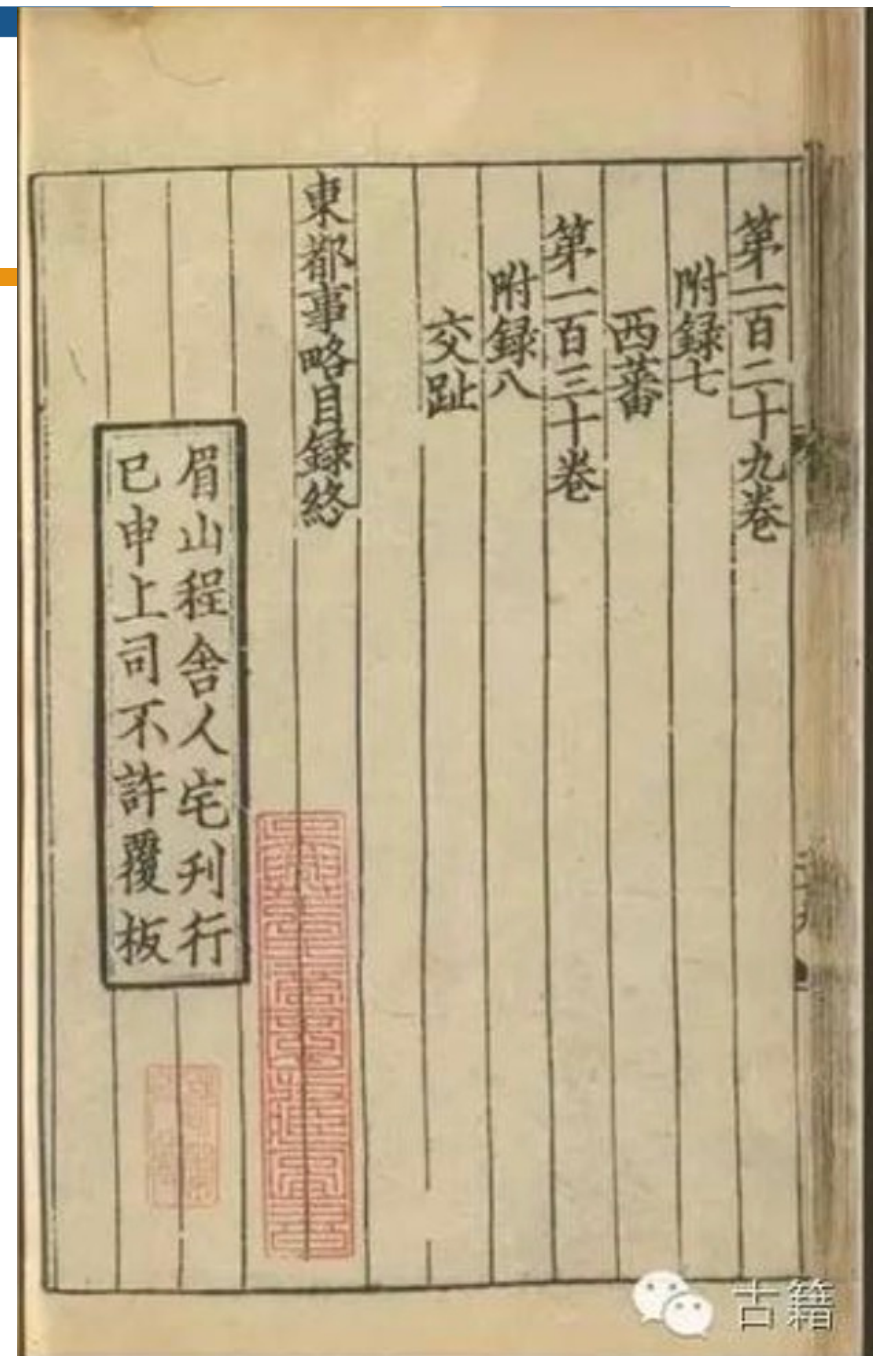 第一百二十九卷
附録七
西蕃
第一百三十卷
附録八
交趾
東都事略目録終
眉山程舍人宅刊行
已申上司不許覆板
古籍